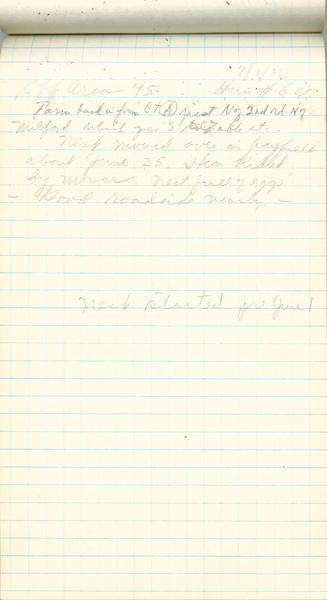 7/1/59
Off Area 45. Hen # 6
Farm back in from C.T. D just N of 2nd rd. N of
Milford which goes S to
Nest mowed over in hayfield
about June 25. Hen killed
by mower. "nest full of eggs"
- Good roadside nearby. -
Nest started pre June 1